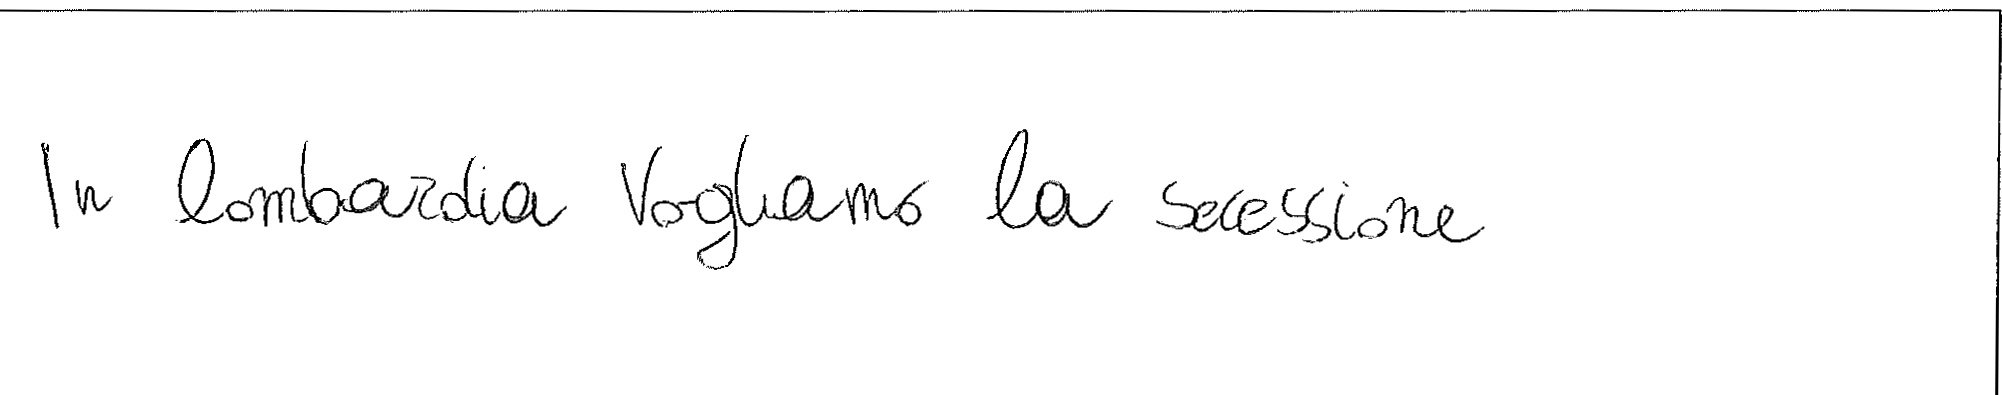 In lombardia Vogliamo la secessione